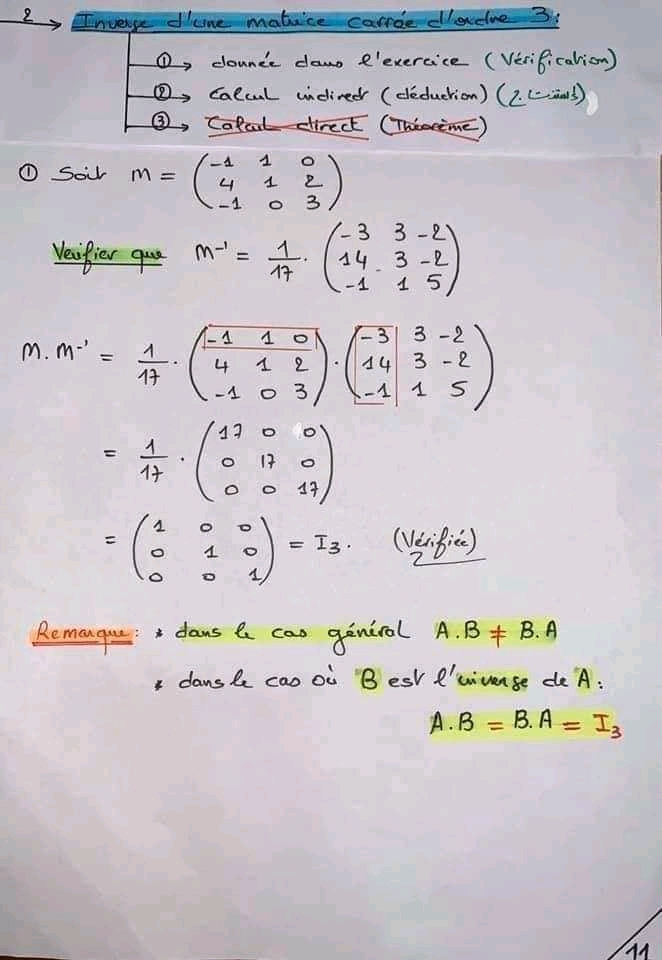 2 → Inverse d'une matrice carrée d'ordre 3:
① → donnée dans l'exercice (Vérification)
② → Calcul indirect (déduction) (استنتاج)
③ → Calcul direct (Théorème)
① Soit M = (-1 1 0
4 1 2
-1 0 3)
Verifier que M⁻¹ = 1/17 · (-3 3 -2
14 3 -2
-1 1 5)
M.M⁻¹ = 1/17 · (-1 1 0
4 1 2
-1 0 3) · (-3 3 -2
14 3 -2
-1 1 5)
= 1/17 · (17 0 0
0 17 0
0 0 17)
= (1 0 0
0 1 0
0 0 1) = I₃. (Vérifiée)
Remarque: * dans le cas général A.B ≠ B.A
* dans le cas où B est l'inverse de A:
A.B = B.A = I₃
11